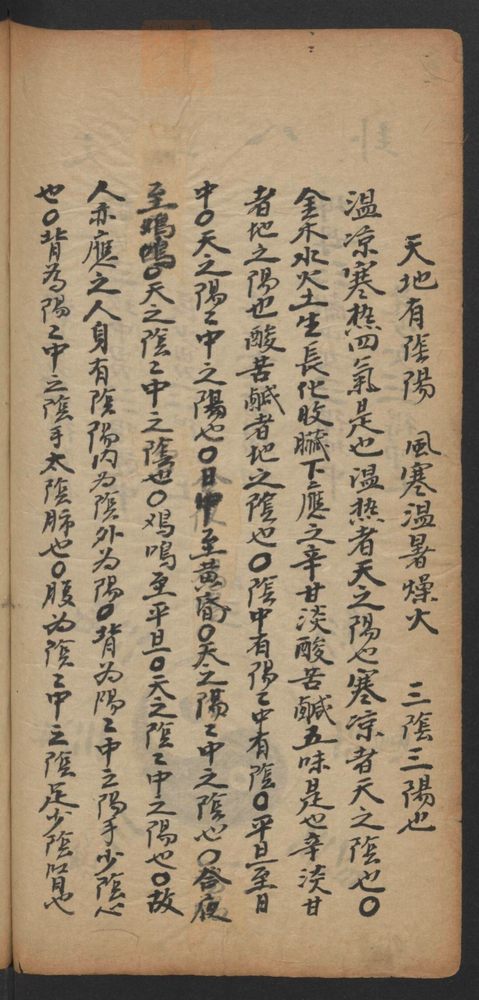 天地有陰陽　風寒温暑燥火　三陰三陽也
温凉寒热四氣是也温热者天之陽也寒凉者天之陰也〇
金木水火土生長化收臟下應之辛甘淡酸苦鹹五味是也辛淡甘
者地之陽也酸苦鹹者地之陰也〇陰中有陽〻中有陰〇平旦至日
中〇天之陽〻中之陽也〇日中至黄昏〇天之陽〻中之陰也〇合夜
至鳴〇天之陰〻中之陰也〇鸡鳴至平旦〇天之陰〻中之陽也〇故
人亦應之人身有陰陽内为陰外为陽〇背为陽〻中之陽手少陰心
也〇背為陽〻中之陰手太陰肺也〇腹为陰〻中之陰足少陰腎也